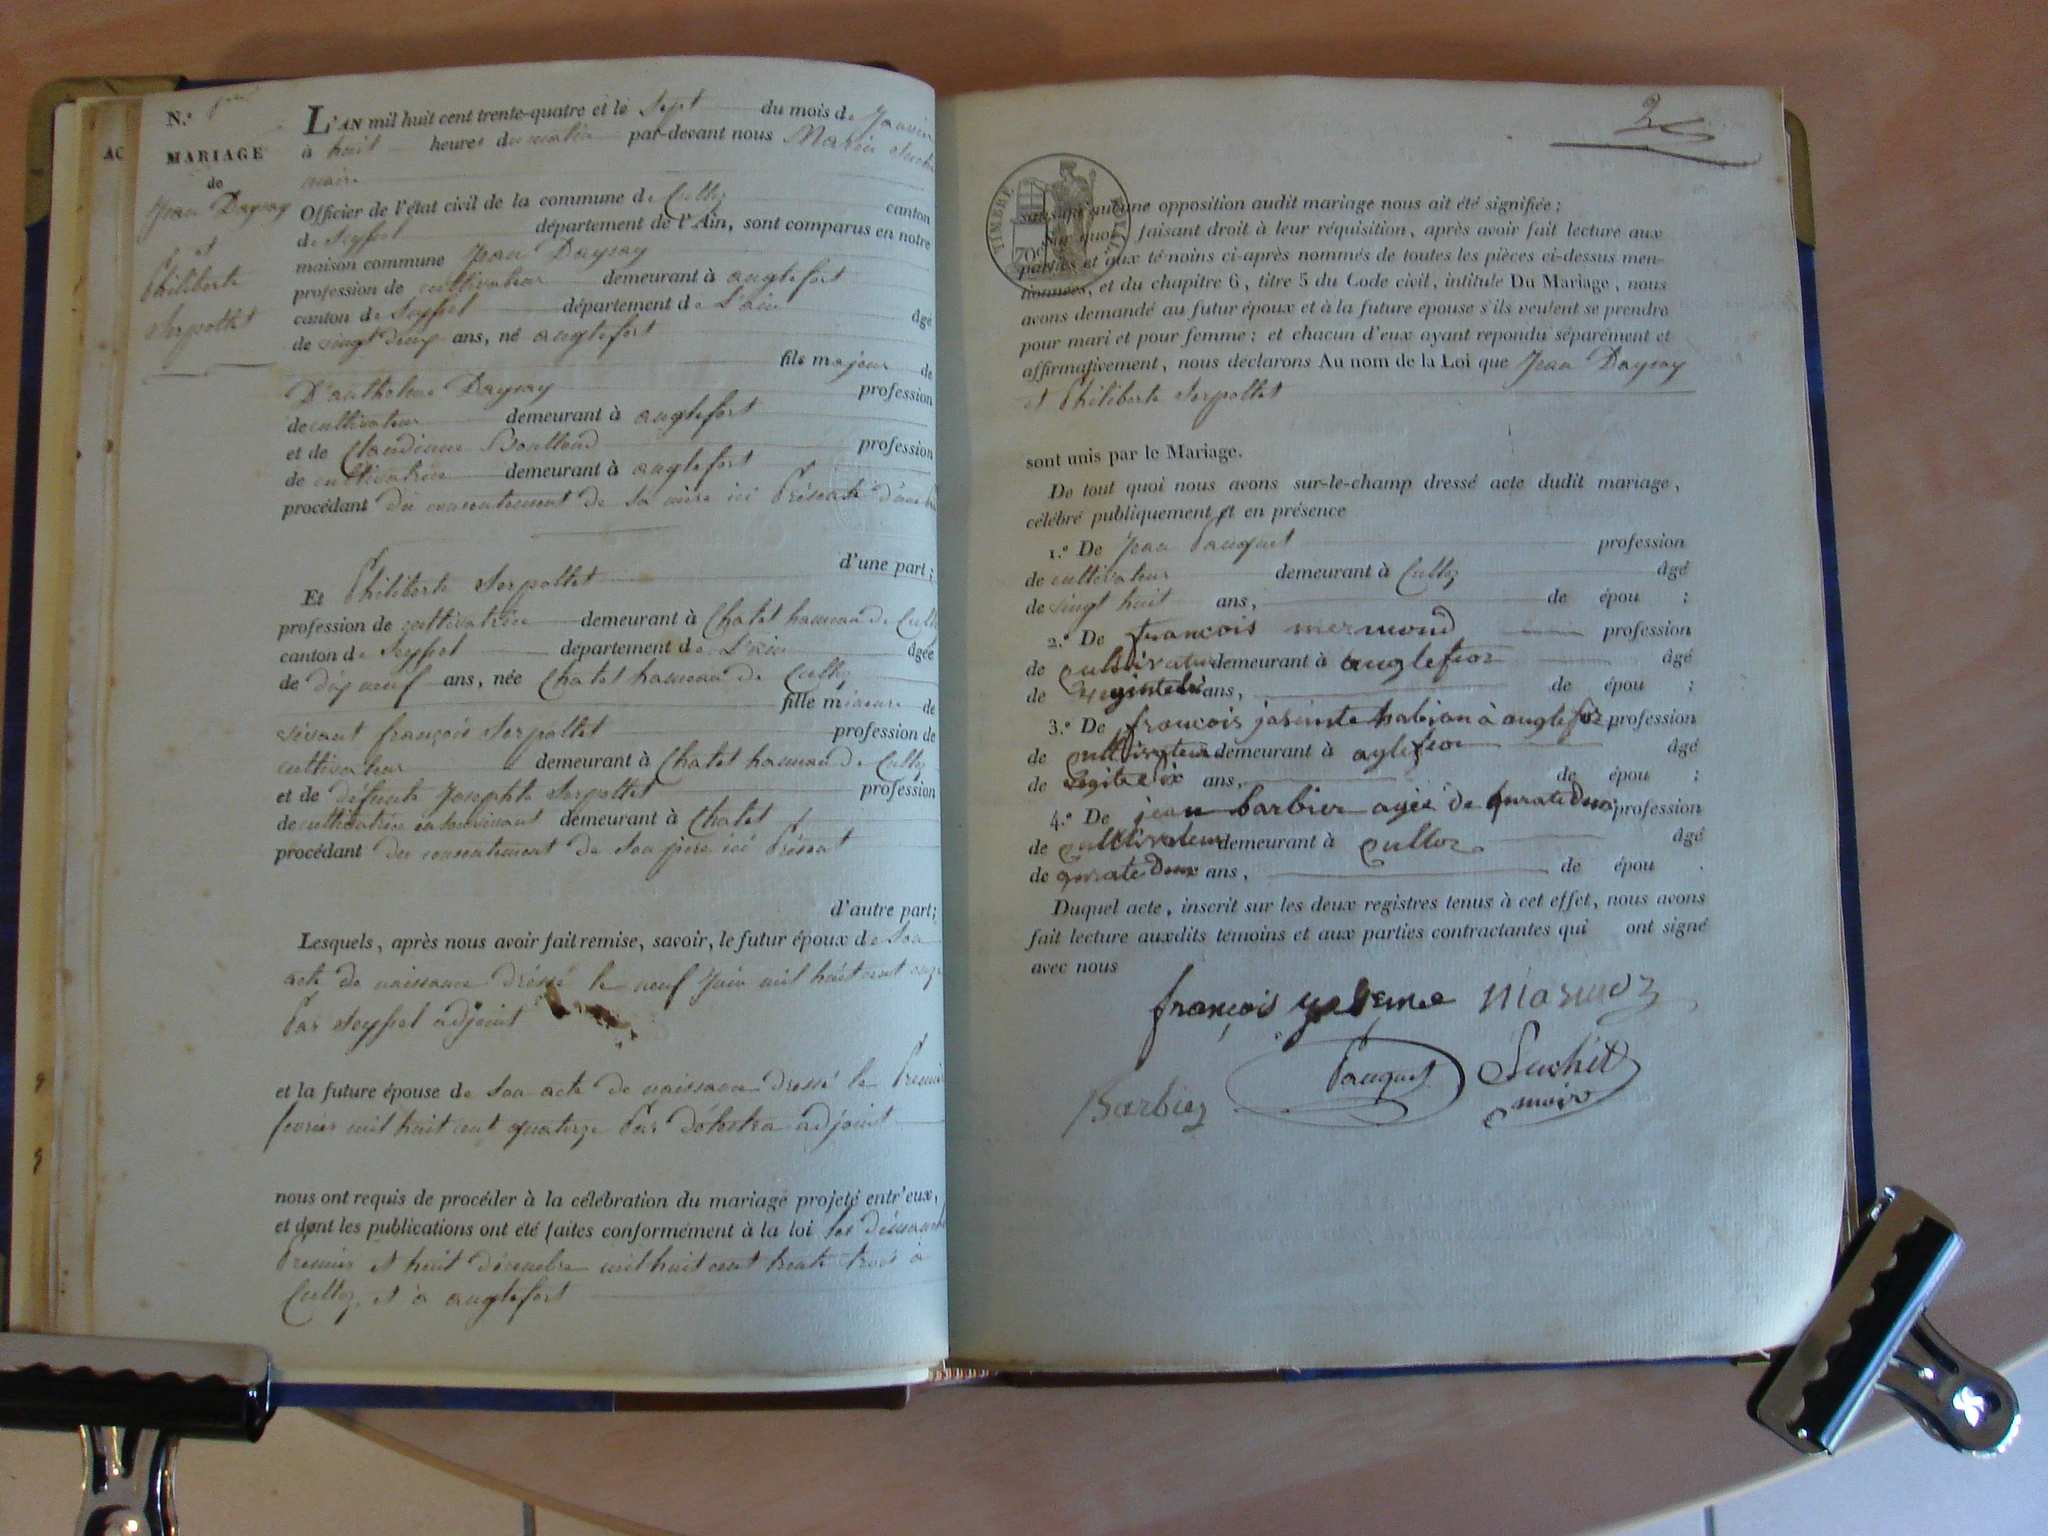 N.º
MARIAGE
de
Jean Dayray
et
Philiberte
Serpollet
L'AN mil huit cent trente-quatre et le Sept du mois de Janvier
à huit heures du matin par-devant nous Marin Suchet
maire
Officier de l'état civil de la commune de Culloz canton
de Seyssel département de l'Ain, sont comparus en notre
maison commune Jean Dayray
profession de cultivateur demeurant à anglefort
canton de Seyssel département de L'ain âgé
de vingt deux ans, né anglefort
fils majeur de
D'anthelme Dayray profession
de cultivateur demeurant à anglefort
et de Claudine profession
de cultivatrice demeurant à anglefort
procédant du consentement de sa mère ici Présente
d'une part;
Et Philiberte Serpollet
profession de cultivatrice demeurant à Chatel hameau de Culloz
canton de Seyssel departement de L'ain âgée
de dix neuf ans, née Chatel hameau de Culloz
fille mineure de
vivant françois Serpollet profession de
cultivateur demeurant à Chatel hameau de Culloz
et de défunte Josephte Serpollet profession
de cultivatrice en son vivant demeurant à Chatel
procédant du consentement de son père ici Présent
d'autre part;
Lesquels, après nous avoir fait remise, savoir, le futur époux de Son
acte de naissance dréssé le neuf Juin mil huit cent onze
Par Seyssel adjoint
et la future épouse de Son acte de naissance dressé le Premier
fevrier mil huit cent quatorze Par adjoint
nous ont requis de procéder à la célébration du mariage projeté entr'eux,
et dont les publications ont été faites conformément à la loi les dimanches
Premier et huit décembre mil huit cent trente trois à
Culloz et à anglefort
2
TIMBRE ROYAL
70c
sans qu'aucune opposition audit mariage nous ait été signifiée;
Sur quoi, faisant droit à leur réquisition, après avoir fait lecture aux
parties et aux témoins ci-après nommés de toutes les pièces ci-dessus men-
tionnées, et du chapitre 6, titre 5 du Code civil, intitulé Du Mariage, nous
avons demandé au futur époux et à la future épouse s'ils veulent se prendre
pour mari et pour femme; et chacun d'eux ayant repondu séparément et
affirmativement, nous declarons Au nom de la Loi que Jean Dayray
et Philiberte Serpollet
sont unis par le Mariage.
De tout quoi nous avons sur-le-champ dressé acte dudit mariage,
célébré publiquement et en présence
1.º De Jean Pauquet profession
de cultivateur demeurant à Culloz âgé
de vingt huit ans, de épou ;
2.º De françois mermond profession
de demeurant à anglefor âgé
de ans, de épou ;
3.º De francois à anglefor profession
de demeurant à âgé
de ans, de épou ;
4.º De jean barbier agée de profession
de demeurant à culloz âgé
de ans, de épou .
Duquel acte, inscrit sur les deux registres tenus à cet effet, nous avons
fait lecture auxdits temoins et aux parties contractantes qui ont signé
avec nous
françois
Pauquet Suchet
Barbier maire